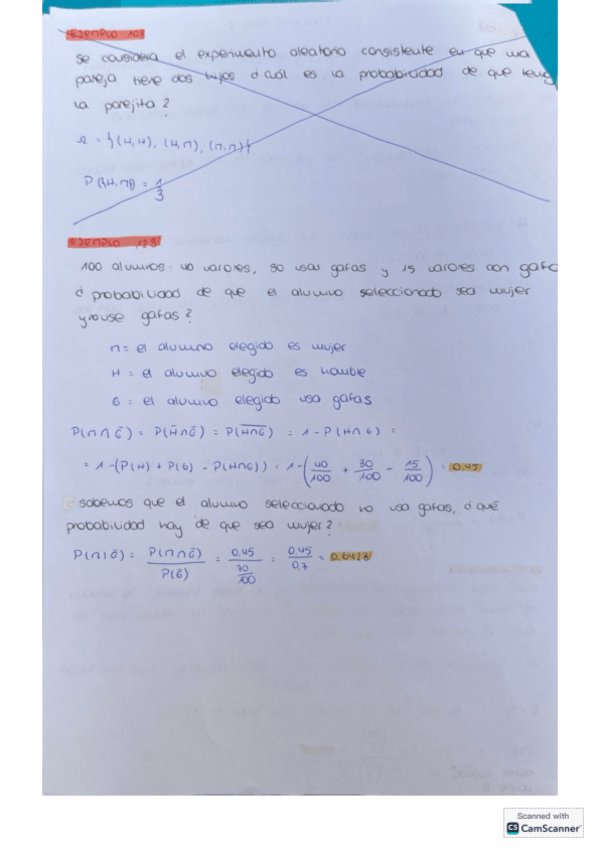 EJEMPLO 108
se considera el experimento aleatorio consistente en que una
pareja tiene dos hijos ¿cuál es la probabilidad de que teng
la parejita?
Ω = {(H,H), (H,M), (M,M)}
P({H,M}) = 1/3
EJEMPLO 129
100 alumnos: 40 varones, 30 usan gafas y 15 varones con gafa
¿ probabilidad de que el alumno seleccionado sea mujer
y no use gafas?
M = el alumno elegido es mujer
H = el alumno elegido es hombre
G = el alumno elegido usa gafas
P(M∩Ḡ) = P(H̄∩Ḡ) = P(\overline{H∩G}) = 1 - P(H∩G) =
= 1-(P(H) + P(G) - P(H∩G)) = 1-(40/100 + 30/100 - 15/100) = 0.45
sabemos que el alumno seleccionado no usa gafas, ¿ qué
probabilidad hay de que sea mujer?
P(M|Ḡ) = P(M∩Ḡ)/P(Ḡ) = 0,45/(70/100) = 0,45/0,7 = 0.6428
Scanned with
CS CamScanner